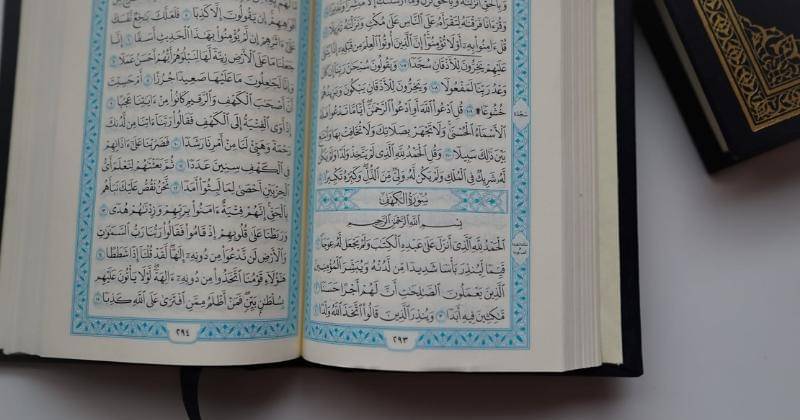 وَبِالْحَقِّ أَنزَلْنَٰهُ وَبِالْحَقِّ نَزَلَ وَمَآ أَرْسَلْنَٰكَ إِلَّا
وَقُرْءَانًا فَرَقْنَٰهُ لِتَقْرَأَهُۥ عَلَى النَّاسِ عَلَىٰ مُكْثٍ وَنَزَّلْنَٰهُ
قُلْ ءَامِنُوا۟ بِهِۦٓ أَوْ لَا تُؤْمِنُوٓا۟ إِنَّ الَّذِينَ أُوتُوا۟ الْعِلْمَ مِن قَبْلِهِۦٓ إِذَا
عَلَيْهِمْ يَخِرُّونَ لِلْأَذْقَانِ سُجَّدًا ١٠٧ وَيَقُولُونَ سُبْحَٰنَ رَبِّنَآ إِن كَانَ
وَعْدُ رَبِّنَا لَمَفْعُولًا ١٠٨ وَيَخِرُّونَ لِلْأَذْقَانِ يَبْكُونَ وَيَزِيدُهُمْ
خُشُوعًا ۩ ١٠٩ قُلِ ادْعُوا۟ اللَّهَ أَوِ ادْعُوا۟ الرَّحْمَٰنَ أَيًّا مَّا تَدْعُوا۟ فَلَهُ
الْأَسْمَآءُ الْحُسْنَىٰ وَلَا تَجْهَرْ بِصَلَاتِكَ وَلَا تُخَافِتْ بِهَا وَابْتَغِ
بَيْنَ ذَٰلِكَ سَبِيلًا ١١٠ وَقُلِ الْحَمْدُ لِلَّهِ الَّذِى لَمْ يَتَّخِذْ وَلَدًا وَلَمْ يَكُن
لَّهُۥ شَرِيكٌ فِى الْمُلْكِ وَلَمْ يَكُن لَّهُۥ وَلِىٌّ مِّنَ الذُّلِّ وَكَبِّرْهُ تَكْبِيرًۢا ١١١
سُورَةُ الْكَهْفِ
بِسْمِ اللَّهِ الرَّحْمَٰنِ الرَّحِيمِ
الْحَمْدُ لِلَّهِ الَّذِىٓ أَنزَلَ عَلَىٰ عَبْدِهِ الْكِتَٰبَ وَلَمْ يَجْعَل لَّهُۥ عِوَجَا ١
قَيِّمًا لِّيُنذِرَ بَأْسًا شَدِيدًا مِّن لَّدُنْهُ وَيُبَشِّرَ الْمُؤْمِنِينَ
الَّذِينَ يَعْمَلُونَ الصَّٰلِحَٰتِ أَنَّ لَهُمْ أَجْرًا حَسَنًا ٢
مَّٰكِثِينَ فِيهِ أَبَدًا ٣ وَيُنذِرَ الَّذِينَ قَالُوا۟ اتَّخَذَ اللَّهُ وَلَدًا ٤
٢٩٣
سَجْدَة
إِن يَقُولُونَ إِلَّا كَذِبًا ٥ فَلَعَلَّكَ بَٰخِعٌ نَّفْسَكَ
عَلَىٰٓ ءَاثَٰرِهِمْ إِن لَّمْ يُؤْمِنُوا۟ بِهَٰذَا الْحَدِيثِ أَسَفًا ٦ إِنَّا
جَعَلْنَا مَا عَلَى الْأَرْضِ زِينَةً لَّهَا لِنَبْلُوَهُمْ أَيُّهُمْ أَحْسَنُ عَمَلًا ٧
وَإِنَّا لَجَٰعِلُونَ مَا عَلَيْهَا صَعِيدًا جُرُزًا ٨ أَمْ حَسِبْتَ
أَنَّ أَصْحَٰبَ الْكَهْفِ وَالرَّقِيمِ كَانُوا۟ مِنْ ءَايَٰتِنَا عَجَبًا ٩
إِذْ أَوَى الْفِتْيَةُ إِلَى الْكَهْفِ فَقَالُوا۟ رَبَّنَآ ءَاتِنَا مِن لَّدُنكَ
رَحْمَةً وَهَيِّئْ لَنَا مِنْ أَمْرِنَا رَشَدًا ١٠ فَضَرَبْنَا عَلَىٰٓ ءَاذَانِهِمْ
فِى الْكَهْفِ سِنِينَ عَدَدًا ١١ ثُمَّ بَعَثْنَٰهُمْ لِنَعْلَمَ أَىُّ
الْحِزْبَيْنِ أَحْصَىٰ لِمَا لَبِثُوٓا۟ أَمَدًا ١٢ نَّحْنُ نَقُصُّ عَلَيْكَ نَبَأَهُم
بِالْحَقِّ إِنَّهُمْ فِتْيَةٌ ءَامَنُوا۟ بِرَبِّهِمْ وَزِدْنَٰهُمْ هُدًى ١٣
وَرَبَطْنَا عَلَىٰ قُلُوبِهِمْ إِذْ قَامُوا۟ فَقَالُوا۟ رَبُّنَا رَبُّ السَّمَٰوَٰتِ
وَالْأَرْضِ لَن نَّدْعُوَا۟ مِن دُونِهِۦٓ إِلَٰهًا لَّقَدْ قُلْنَآ إِذًا شَطَطًا ١٤
هَٰٓؤُلَآءِ قَوْمُنَا اتَّخَذُوا۟ مِن دُونِهِۦٓ ءَالِهَةً لَّوْلَا يَأْتُونَ عَلَيْهِم
بِسُلْطَٰنٍۭ بَيِّنٍ فَمَنْ أَظْلَمُ مِمَّنِ افْتَرَىٰ عَلَى اللَّهِ كَذِبًا ١٥
٢٩٤